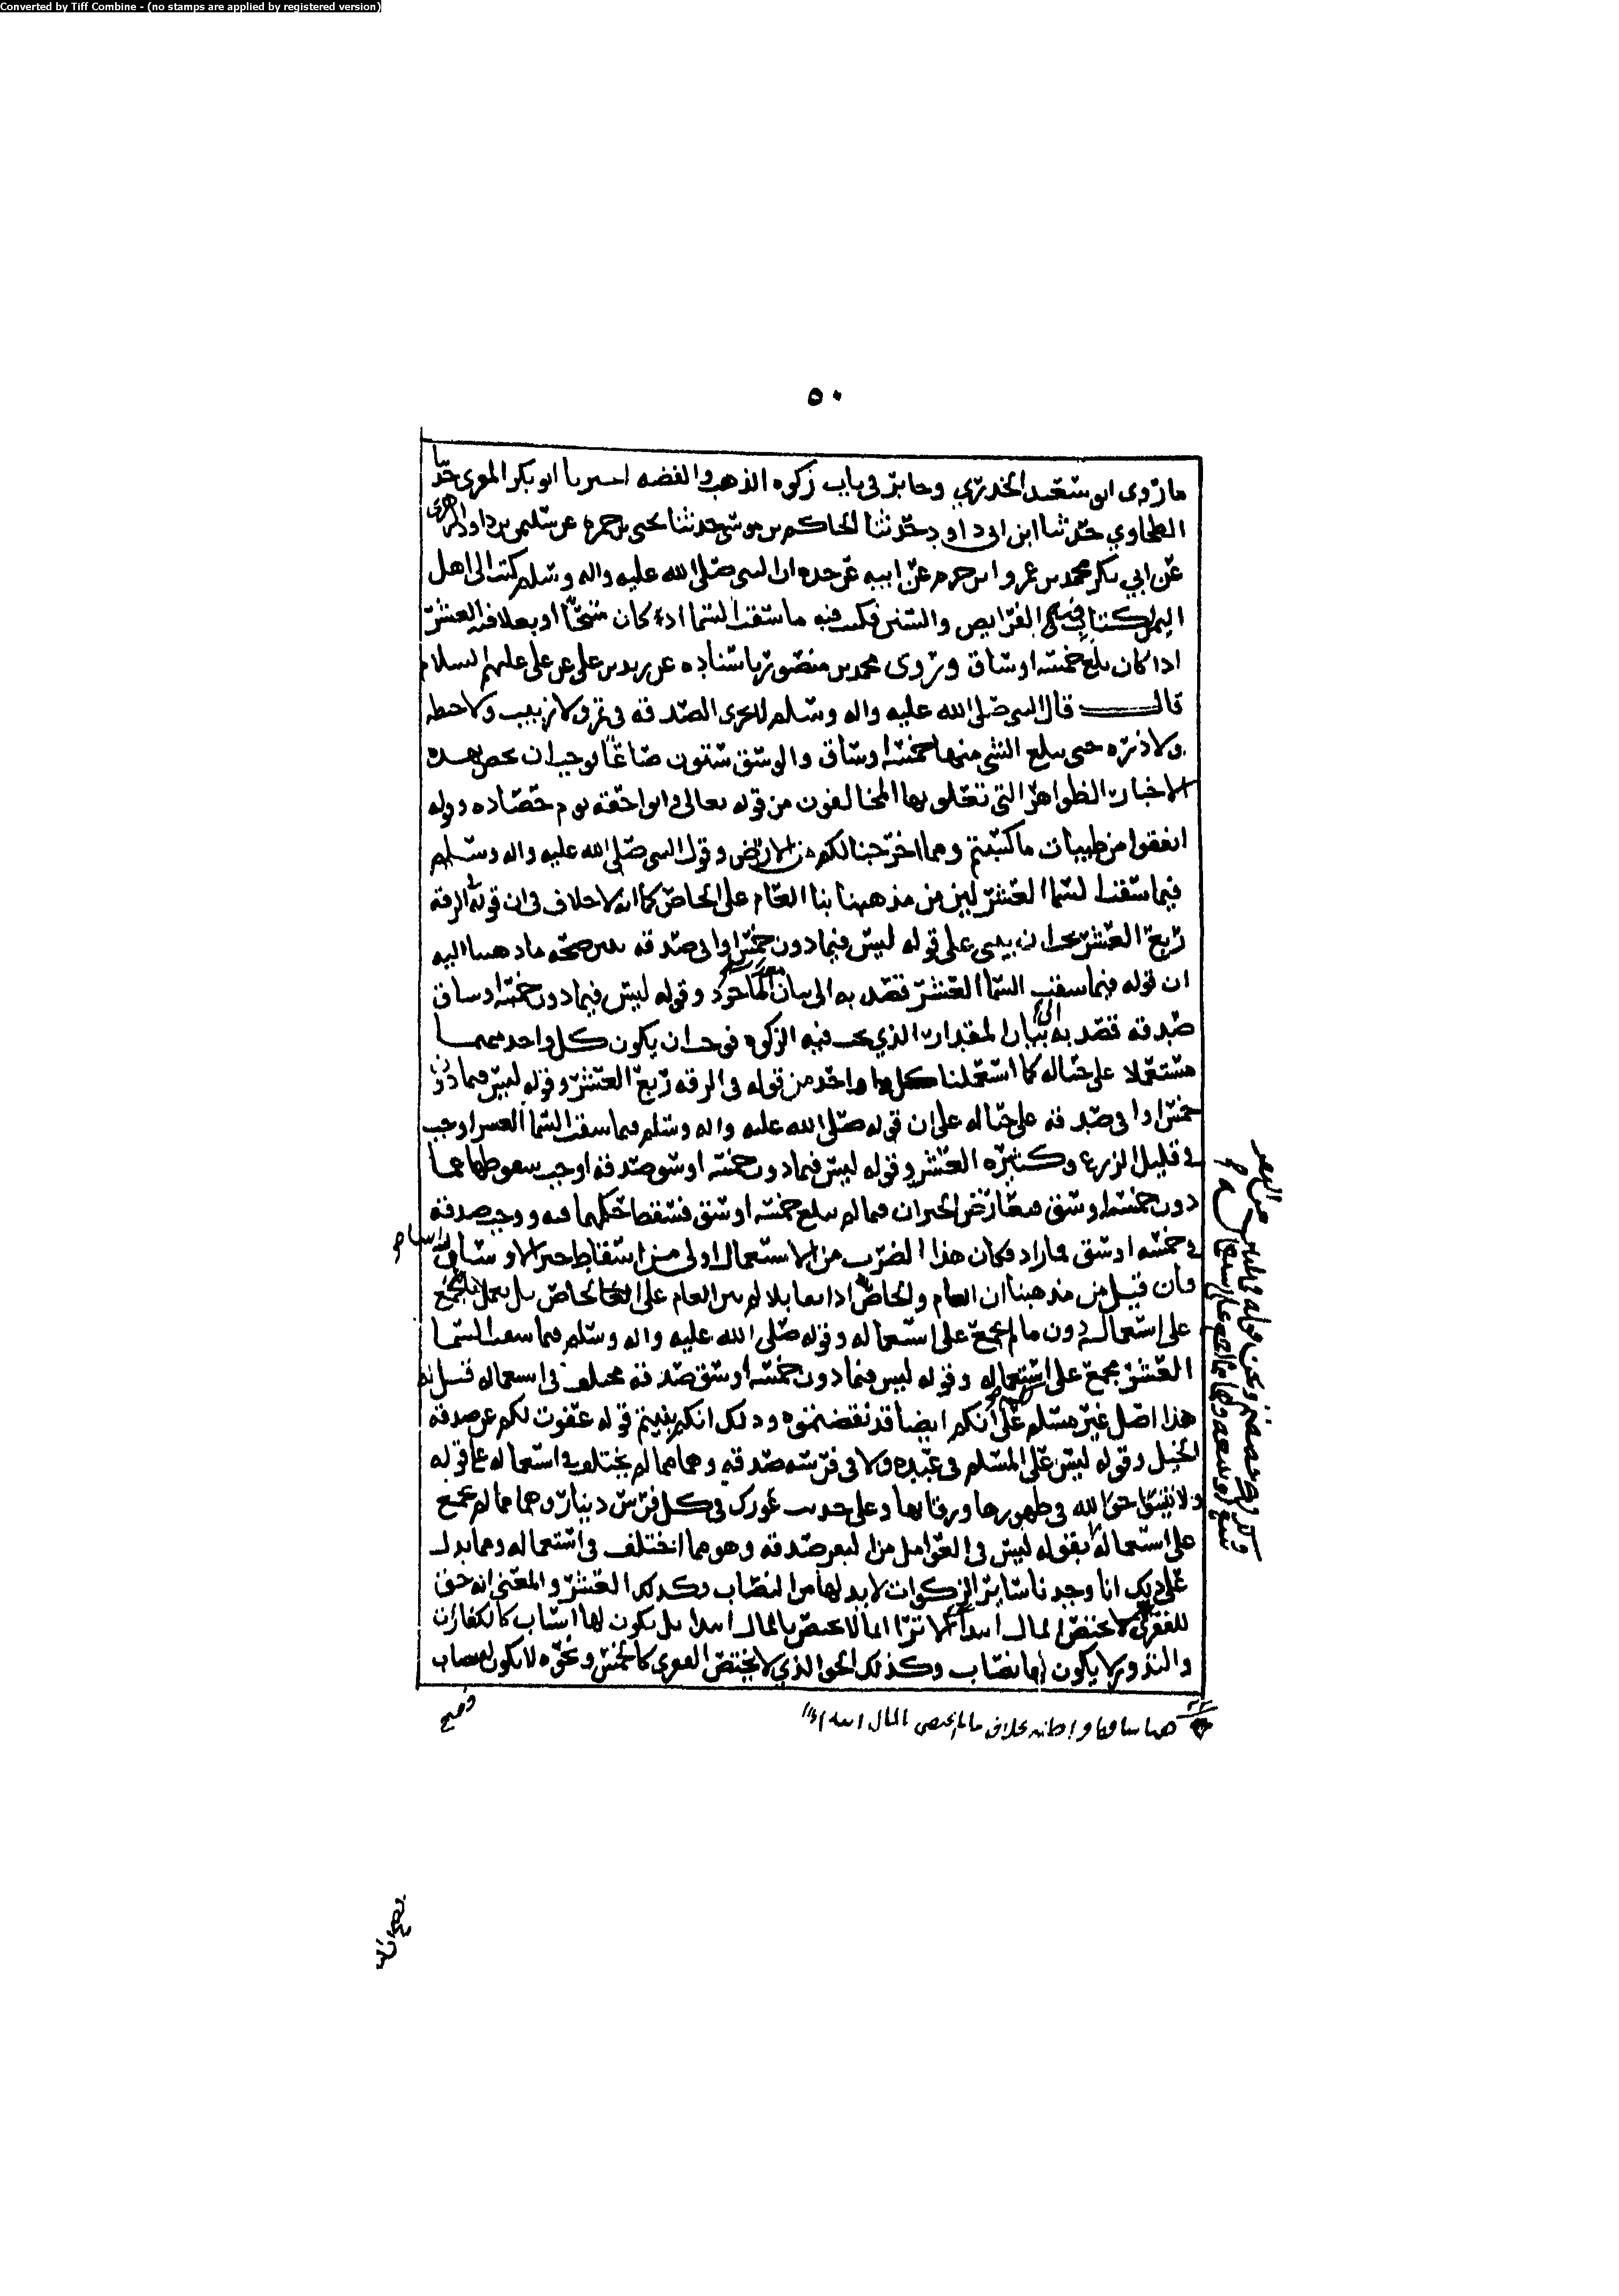 Converted by Tiff Combine - (no stamps are applied by registered version)
٥٠
ما روى ابو سعيد الخدري وجابر في باب زكوه الذهب والفضه اخبرنا ابو بكر المقري حدثنا
الطحاوي حدثنا ابن ابي داود حدثنا الحاكم بن موسى حدثنا يحيى بن حمزه عن سليمن بن داود الزهري
عن ابي بكر محمد بن عمرو ابن حزم عن ابيه عن جده ان النبي صلى الله عليه واله وسلم كتب الى اهل
اليمن كتابا فيه الفرايض والسنن فكتب فيه ما سقت السما او كان سيحا او بعلا فيه العشر
اذا كان بلغ خمسه اوساق وروى محمد بن منصور باسناده عن زيد بن علي عن علي عليهم السلام
قال قال النبي صلى الله عليه واله وسلم الصدقه في تمر ولا زبيب ولا حنطه
ولا ذره حتى يبلغ الشي منها خمسه اوساق والوسق ستون صاعا فوجب ان يخص بهذه
الاخبار الظواهر التي تعلق بها المخالفون من قوله تعالى واتوا حقه يوم حصاده وقوله
انفقوا من طيبات ما كسبتم ومما اخرجنا لكم من الارض وقول النبي صلى الله عليه واله وسلم
فيما سقت السما العشر لان من مذهبنا بنا العام على الخاص كما انه لا خلاف في ان قوله في الرقه
ربع العشر يجب ان يبنى على قوله ليس فيما دون خمس اواق صدقه يبين صحه ما ذهبنا اليه
ان قوله فيما سقت السما العشر قصد به الى بيان الماخوذ وقوله ليس فيما دون خمسه اوساق
صدقه قصد به الى بيان المقدار الذي يجب فيه الزكوه فوجب ان يكون كل واحد منهما
مستعملا على حياله كما استعملنا كل واحد من قوله في الرقه ربع العشر وقوله ليس فيما دون
خمس اواق صدقه على حياله على ان قوله صلى الله عليه واله وسلم فيما سقت السما العشر اوجب
في قليل الزرع وكثيره العشر وقوله ليس فيما دون خمسه اوسق صدقه اوجب سقوطها عما
دون خمسه اوسق فتعارض الخبران فيما لم يبلغ خمسه اوسق فسقط حكمهما فيه ووجب صدقه
في خمسه اوسق فما زاد فكان هذا الضرب من الاستعمال اولى من اسقاط خبر الاوساق
فان قيل من مذهبنا ان العام والخاص اذا تقابلا لم يبن العام على الخاص بل يعمل بما اجمع
على استعماله دون ما لم يجمع على استعماله وقوله صلى الله عليه واله وسلم فيما سقت السما
العشر مجمع على استعماله وقوله ليس فيما دون خمسه اوسق صدقه مختلف في استعماله قيل له
هذا اصل غير مسلم على انكم ايضا قد نقضتموه وذلك انكم بنيتم قوله عفوت لكم عن صدقه
الخيل وقوله ليس على المسلم في عبده ولا في فرسه صدقه وهما مما لم يختلف في استعماله على قوله
ولا ينسى حق الله في ظهورها ورقابها وعلى حديث غورك في كل فرس دينار وهما مما لم يجمع
على استعماله بقوله ليس في العوامل من البقر صدقه وهو مما اختلف في استعماله ومما يدل
على ذلك انا وجدنا ساير الزكوات لا بد لها من النصاب فكذلك العشر والمعنى انه حق
يختص المال ابتدا الا ترا لا يختص بالمال ابتدا بل يكون لها اسباب كالكفارات
والنذور لا يكون لها نصاب وكذلك الحق الذي لا يختص كالخمس ونحوه لا يكون له نصاب